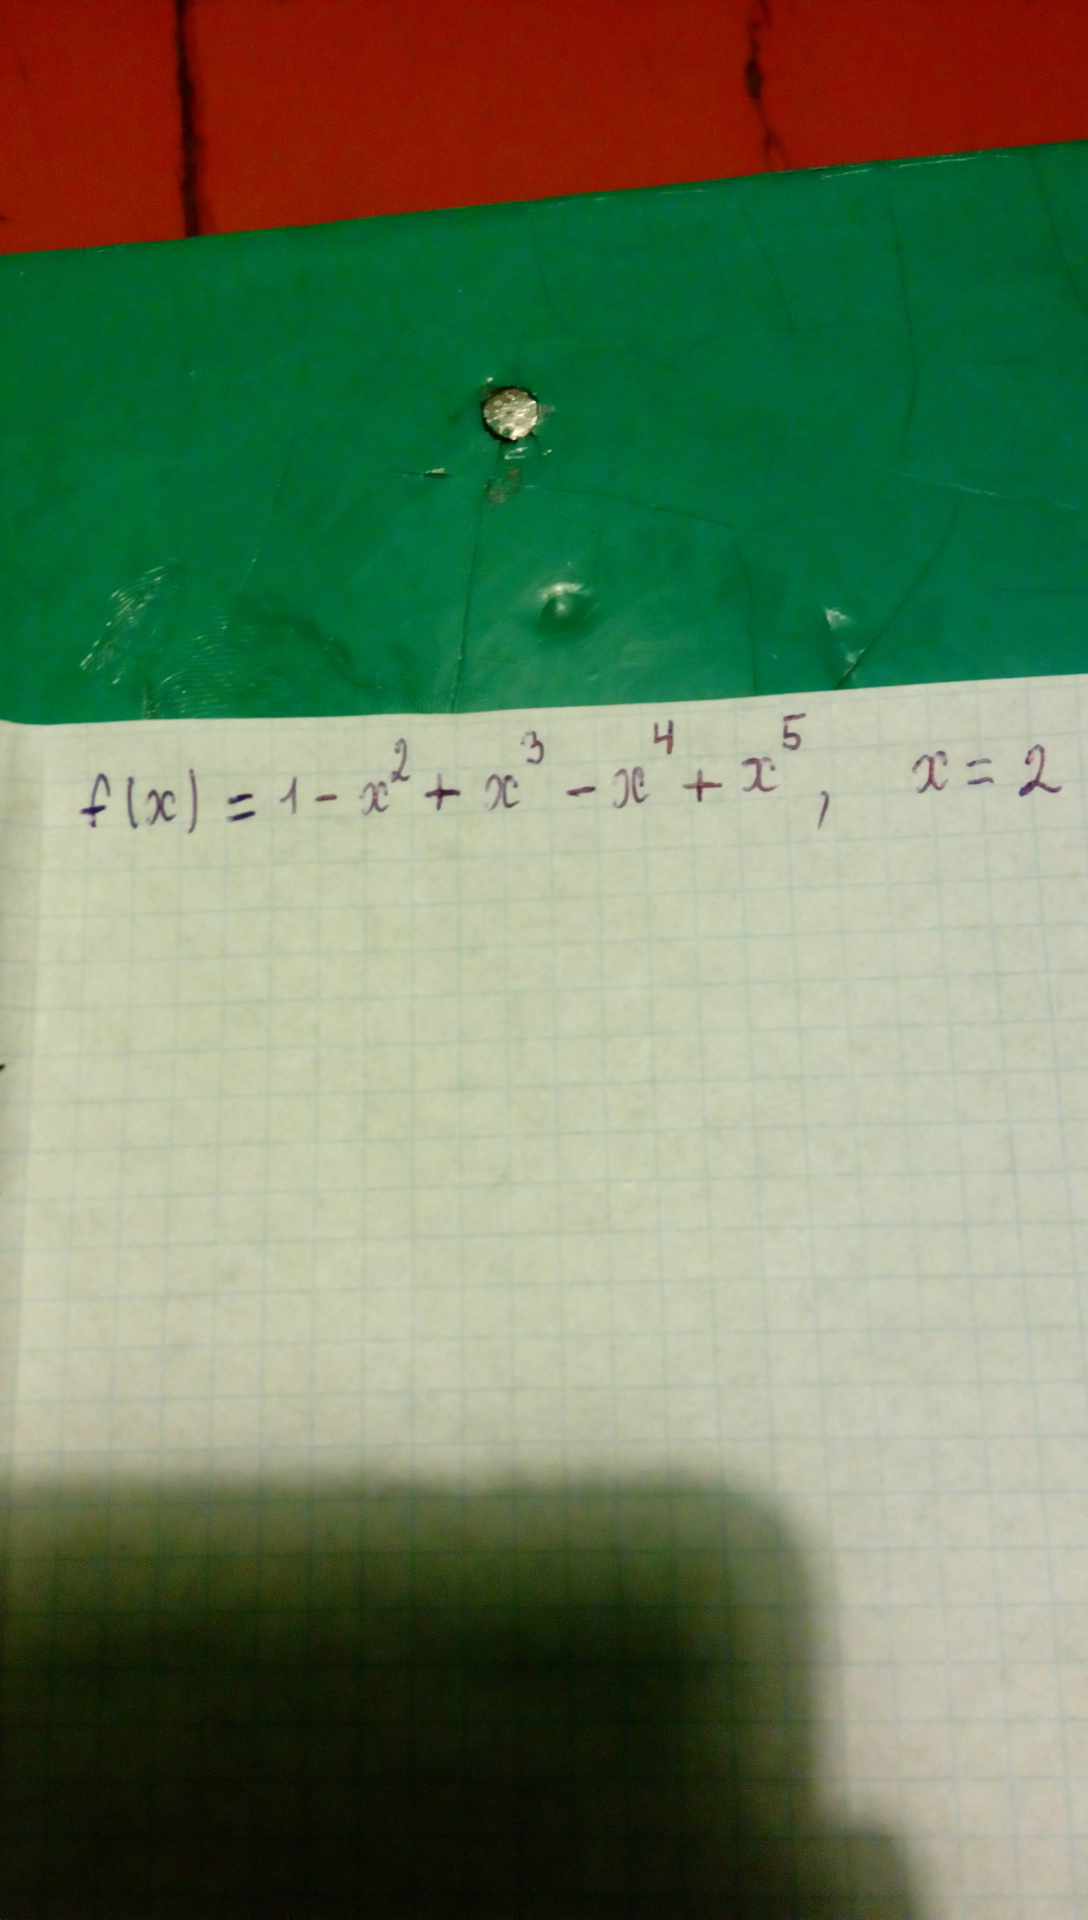 f(x) = 1 - x² + x³ - x⁴ + x⁵, x = 2